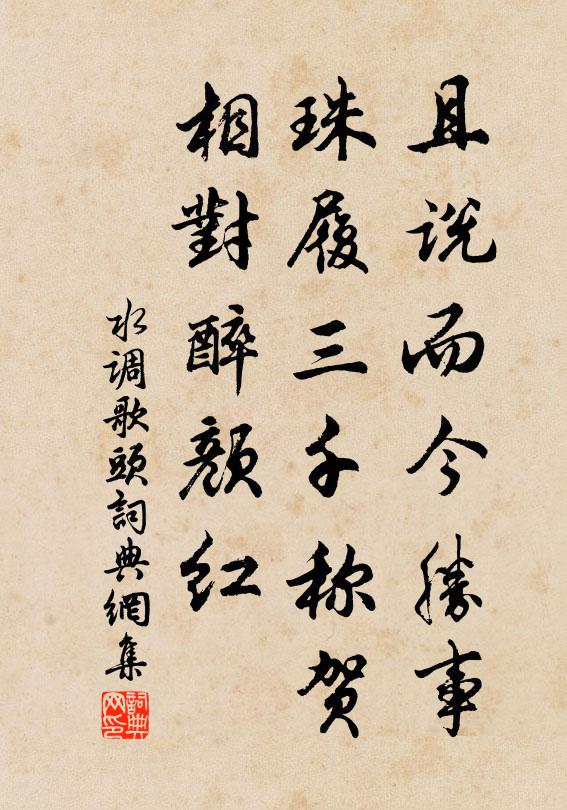 且说而今勝事
珠履三千称贺
相對醉颜红
水调歌頭詞典網集
詞典
网印